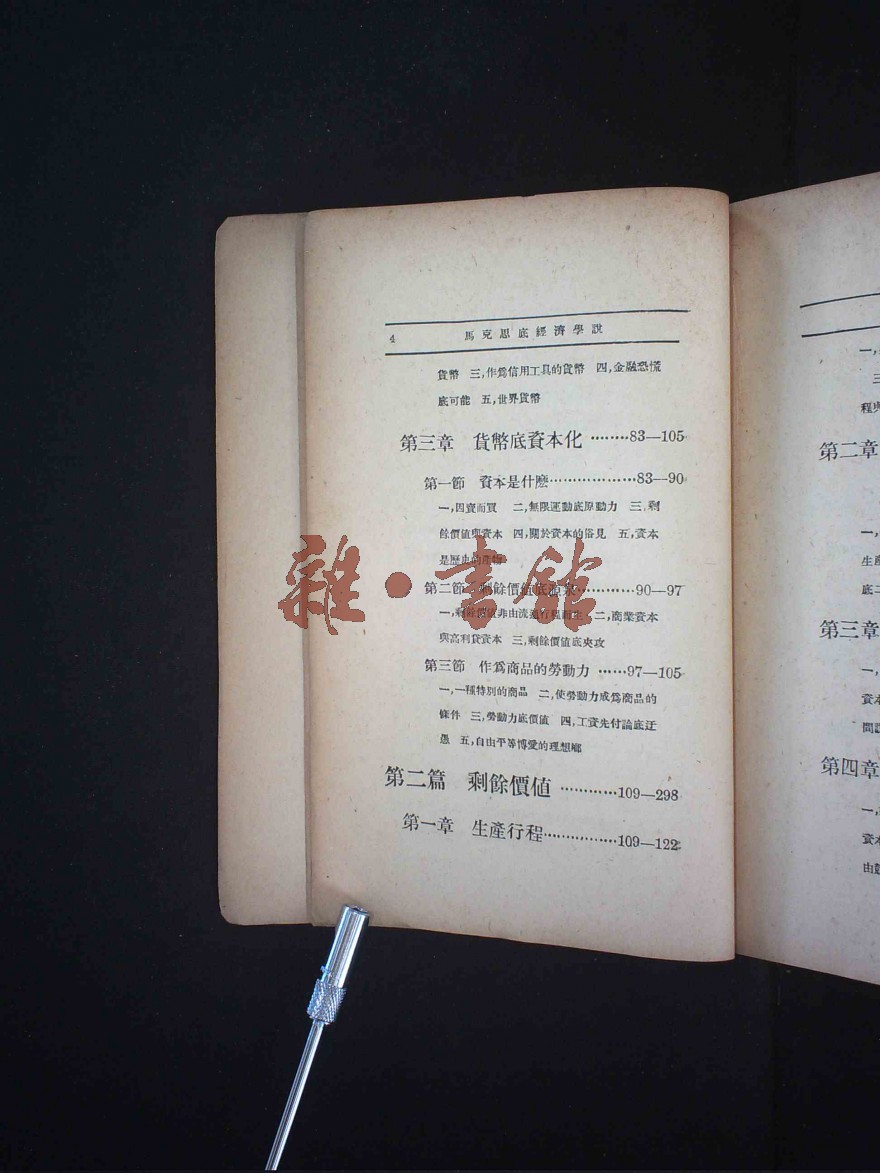 4 馬克思底經濟學說
貨幣 三,作爲信用工具的貨幣 四,金融恐慌
底可能 五,世界貨幣
第三章 貨幣底資本化 ········83—105
第一節 資本是什麽··················83—90
一,四賣而買 二,無限運動底原動力 三,剩
餘價值與資本 四,關於資本的俗見 五,資本
是歷史的產物
第二節 剩餘價值底源泉············90—97
一,剩餘價值非由流通行程而生 二,商業資本
與高利貸資本 三,剩餘價值底夾攻
第三節 作爲商品的勞動力 ······97—105
一,一種特別的商品 二,使勞動力成爲商品的
條件 三,勞動力底價值 四,工資先付論底迂
愚 五,自由平等博愛的理想鄉
第二篇 剩餘價値 ············109—298
第一章 生產行程················109—122
雜·書館
一,
三
程與
第二章
一,
生產
底二
第三章
一,
資本
問題
第四章
一,
資本
由競